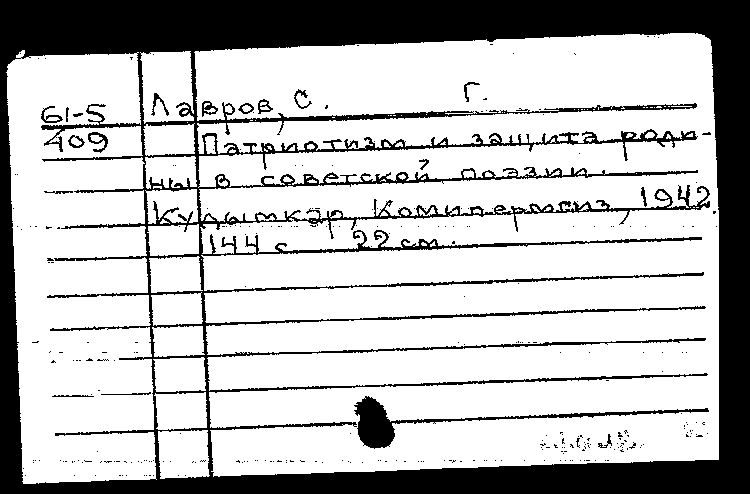 61-5 Лавров, С. Г.
409 Патриотизм и защита роди-
ны в советской поэзии.
Кудымкар, Комипермгиз, 1942.
144 с 22 см.